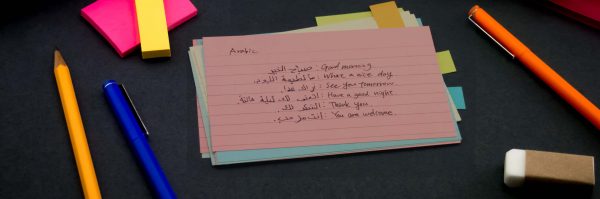 Arabic
صباح الخير : Good morning.
What a nice day.
أراك غدا. : See you tomorrow.
أتمنى لك ليلة هانئة. : Have a good night.
الشكر لك. : Thank you.
أنت مرحب. : You are welcome.